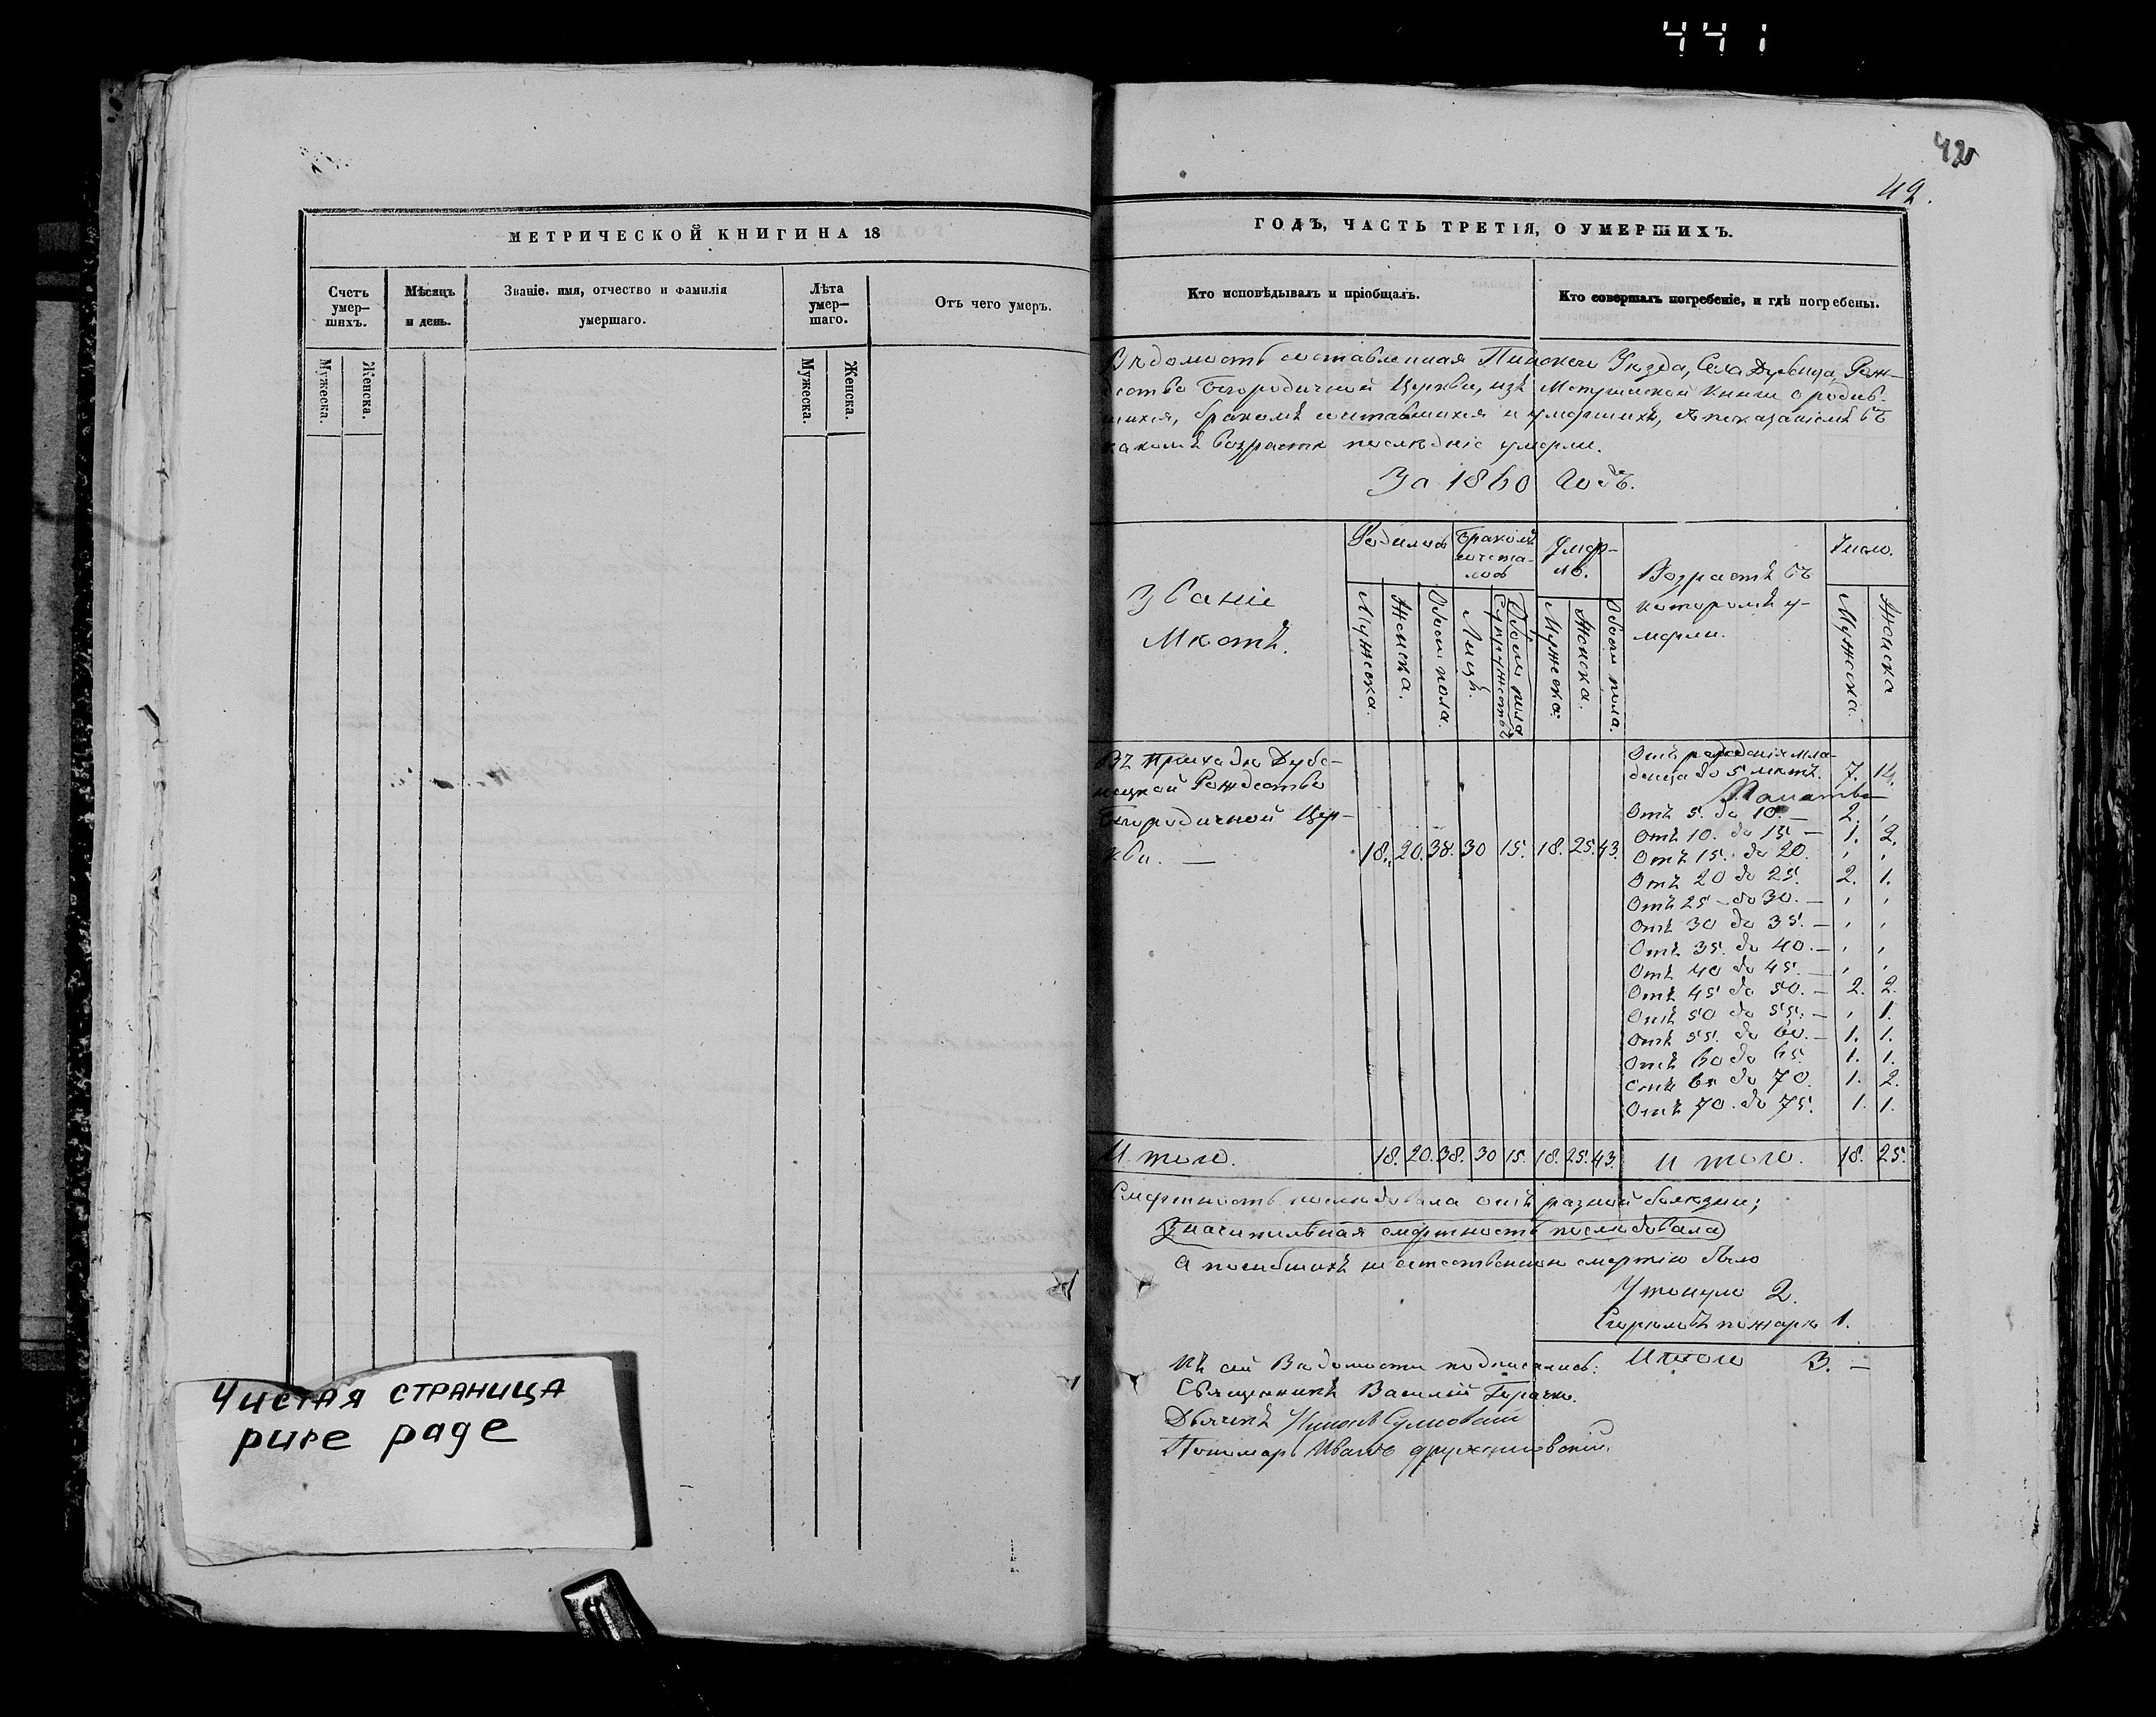 441
42
42.
МЕТРИЧЕСКОЙ КНИГИ НА 18
Счетъ умер—шихъ.
Мѣсяцъ и день.
Званіе. имя, отчество и фамилія умершаго.
Лѣта умер—шаго.
Отъ чего умеръ.
Мужеска.
Женска.
Мужеска.
Женска.
Чистая страница
pure page
ГОДЪ, ЧАСТЬ ТРЕТІЯ, О УМЕРШИХЪ.
Кто исповѣдывалъ и пріобщалъ.
Кто совершалъ погребеніе, и гдѣ погребены.
Вѣдомость составленная Пинскаго Уѣзда, Села Дубенца, Рож-
ество Богородичной Церкви, изъ Метрической Книги о родив-
шихся, бракомъ сочетавшихся и умершихъ, съ показаніемъ въ
какомъ возрастѣ послѣдніе умерли.
За 1860 Годъ.
Званіе
Мѣстъ.
Родилось
Бракомъ сочета-лось
Умер-ло.
Возрастъ въ
которомъ у-
мерли.
Число.
Мужеска.
Женска.
Обоего пола.
Лицъ.
Мужеска.
Женска.
Обоего пола.
Мужеска.
Женска
Въ Приходѣ Дубе-
нецкой Рождество
Богородичной Цер-
кви. — 18. 20. 38. 30 15. 18. 25. 43.
Отъ рожденія мла-
денца до 5 лѣтъ. 7. 14.
Отъ 5. до 10. — 2. ,
Отъ 10. до 15 — 1. 2.
Отъ 15. до 20. , ,
Отъ 20 до 25. 2. 1.
Отъ 25 — до 30. — , ,
Отъ 30 до 35. — , ,
Отъ 35. до 40. — , ,
Отъ 40 до 45. — , ,
Отъ 45 до 50. — 2. 2.
Отъ 50 до 55. — , 1.
Отъ 55. до 60. — 1. 1.
Отъ 60 до 65 1. 1.
Отъ 65 до 70. 1. 2.
Отъ 70. до 75. 1. 1.
Итого. 18. 20. 38. 30 15. 18. 25. 43. Итого. 18. 25.
Смертность послѣдовала отъ разной болѣзни;
Значительная смертность послѣдовала
А погибшихъ не естественною смертію было
Утонуло 2.
Сгорѣло въ пожарѣ 1.
Итого 3. —
Къ сей Вѣдомости подписались:
Священникъ Василій
Дьячекъ
Пономарь Иванъ